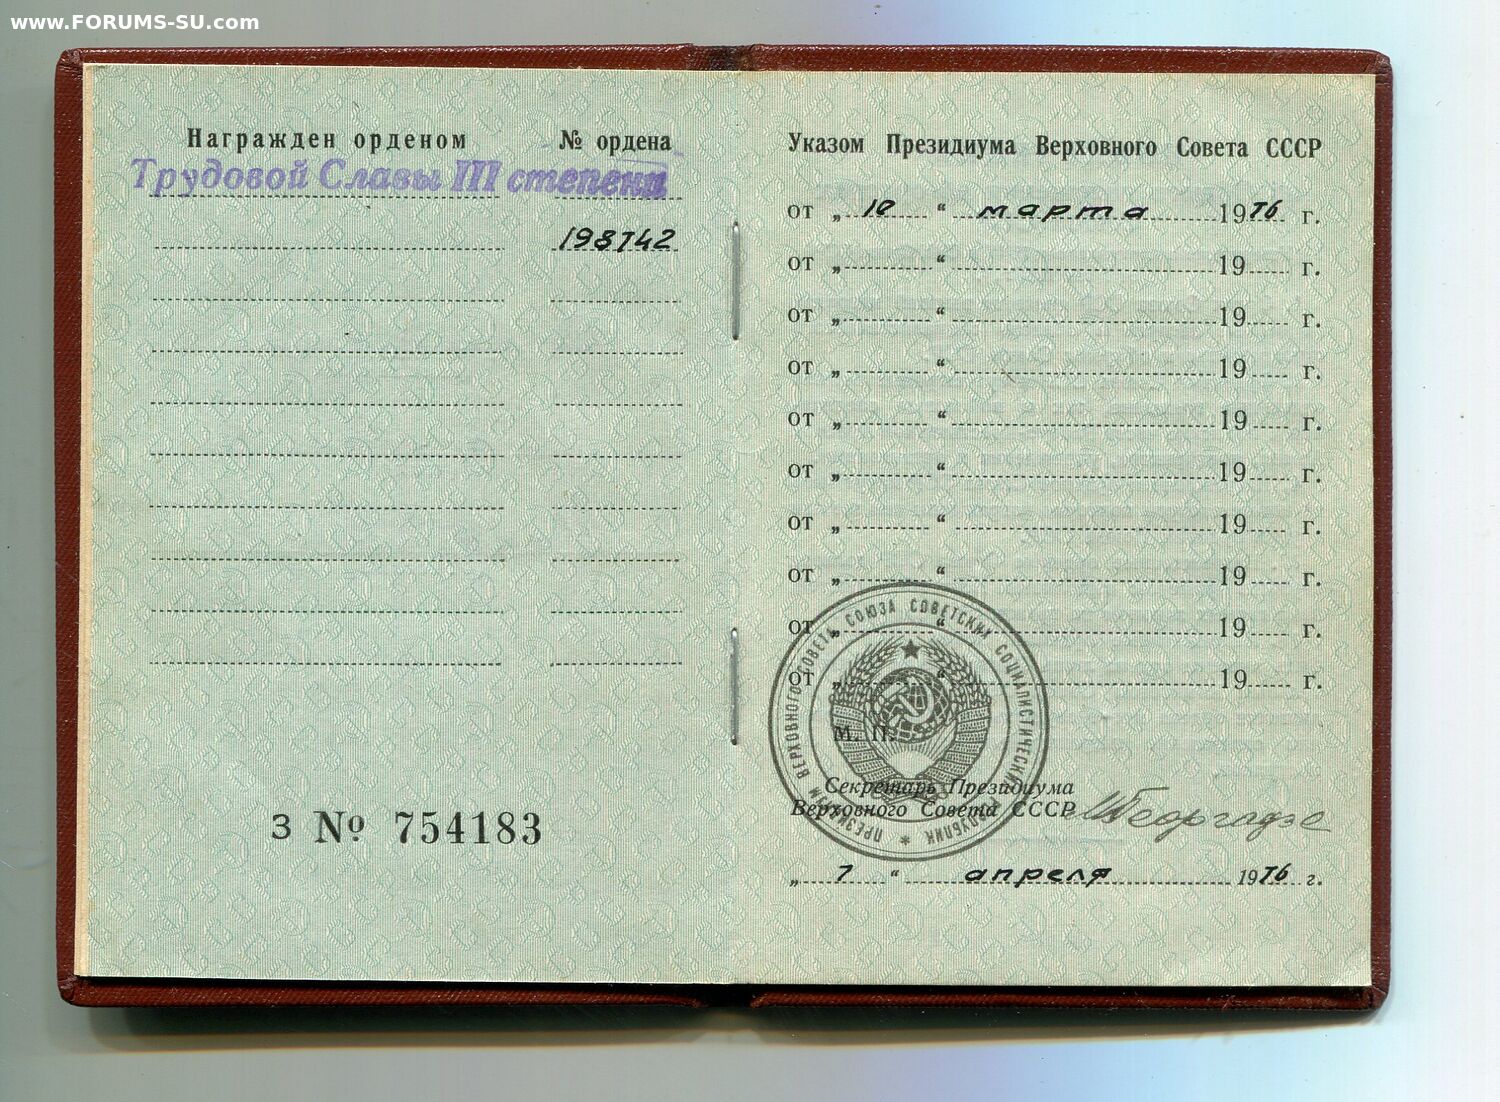 www.FORUMS-SU.com
Награжден орденом № ордена
Трудовой Славы III степени
198742
З № 754183
Указом Президиума Верховного Совета СССР
от „ 10 “ марта 1976 г.
от „ “ 19 г.
от „ “ 19 г.
от „ “ 19 г.
от „ “ 19 г.
от „ “ 19 г.
от „ “ 19 г.
от „ “ 19 г.
от „ “ 19 г.
от „ “ 19 г.
ПРЕЗИДИУМ ВЕРХОВНОГО СОВЕТА СОЮЗА СОВЕТСКИХ СОЦИАЛИСТИЧЕСКИХ РЕСПУБЛИК *
М. П.
Секретарь Президиума
Верховного Совета СССР МГеоргадзе
„ 7 “ апреля 1976 г.